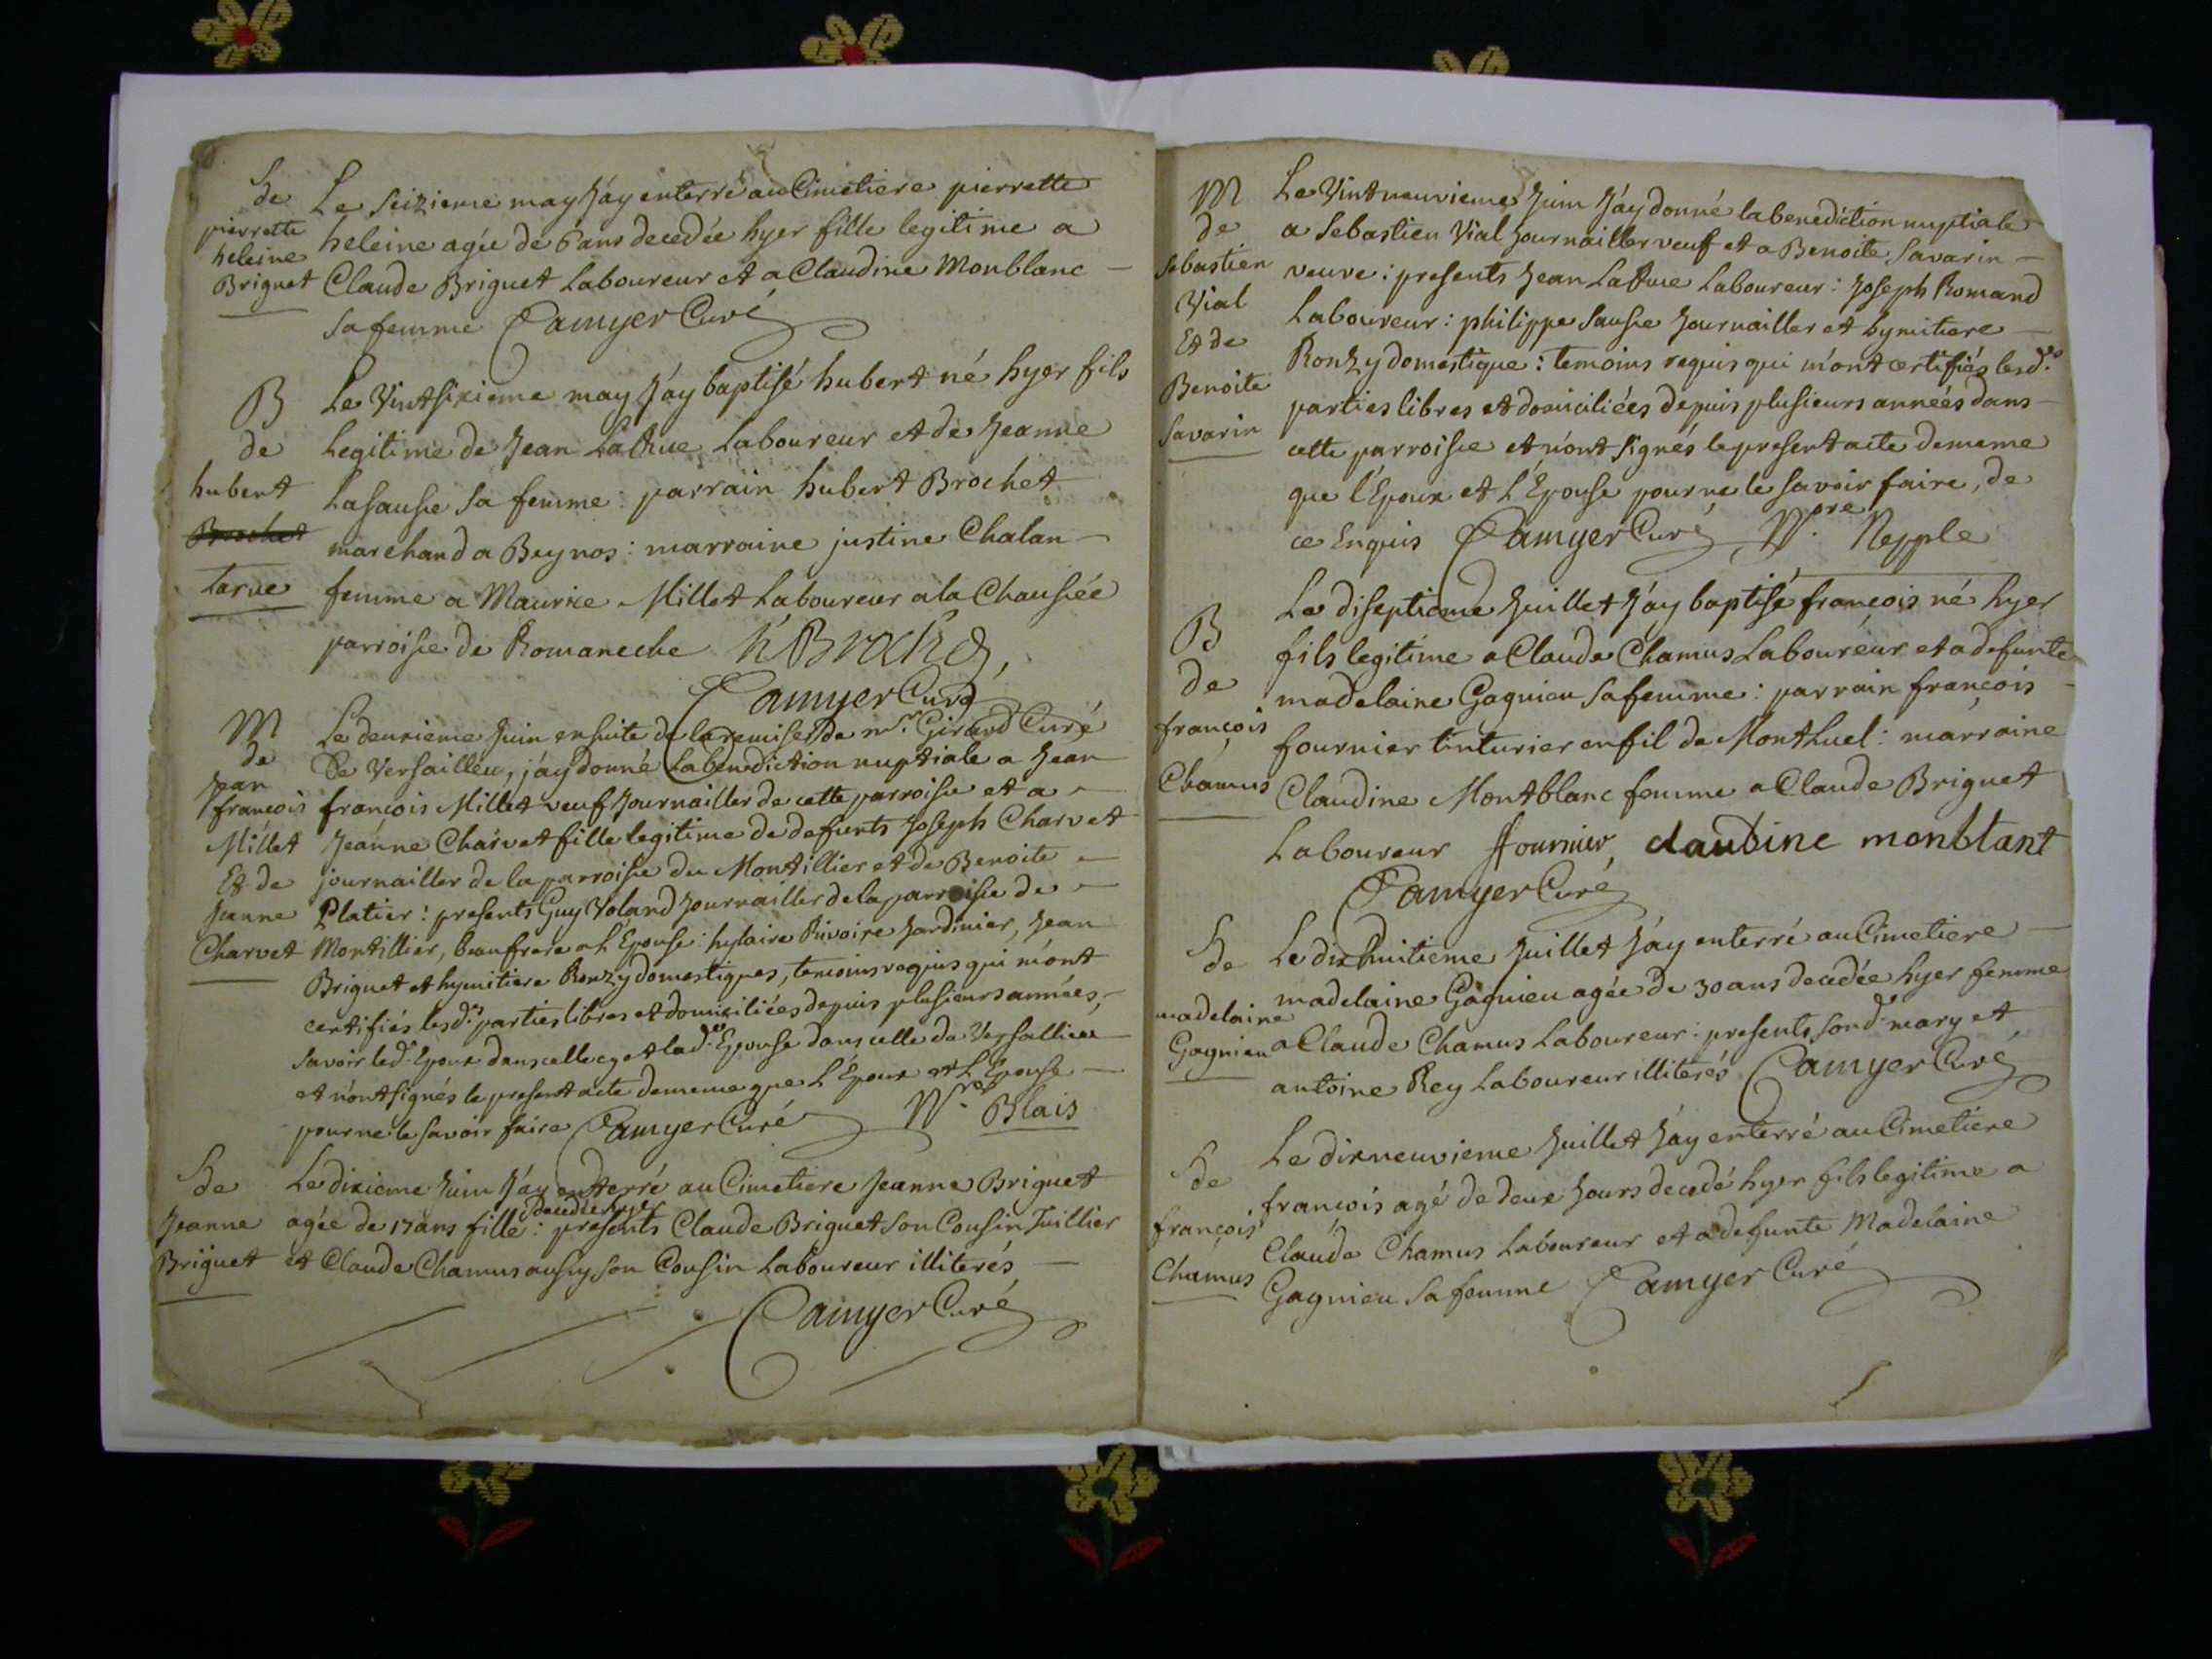 S de pierrette heleine Briguet
Le Seizieme may J'ay enterré au Cimetiere pierrette
heleine agée de 6 ans decedée hyer fille legitime a
Claude Briguet Laboureur et a Claudine Monblanc —
sa femme Camyer Curé
B de hubert Brochet Larue
Le Vintsixieme may J'ay baptisé hubert né hyer fils
Legitime de Jean LaRue Laboureur et de Jeanne
Lasausse sa femme : parrain hubert Brochet
marchand a Beynos : marraine justine Chalan —
femme a Maurice Millet Laboureur a la Chaussée
parroisse de Romaneche h Brochet,
Camyer Curé
M de Jean françois Millet Et de Jeanne Charvet
Le deuxieme Juin ensuite de la remise de mr. Girard Curé
De Versaillieu, j'ay donné la benediction nuptiale a Jean
françois Millet veuf Journailler de cette parroisse et a —
Jeanne Charvet fille legitime de defunts Joseph Charvet
journailler de la parroisse du Montillier et de Benoite —
Platier : presents Guy Voland Journailler de la parroisse de —
Montillier, beaufrere a l'Épouse : hylaire Rivoire Jardinier, Jean
Briguet et hymitiere Ronzy domestiques, temoins requis qui m'ont
certifiés lesd. parties libres et domiciliées depuis plusieurs années, —
savoir led. Epoux dans celle cy et lad. Epouse dans celle de Versallieu
et n'ont signés le present acte de meme que L'Époux et L'Épouse —
pour ne le savoir faire Camyer Curé Blais
S de Jeanne Briguet
Le dixieme Juin J'ay enterré au Cimetiere Jeanne Briguet
decedée hyer
agée de 17 ans fille : presents Claude Briguet son Cousin Tuillier
et Claude Chamus aussy son Cousin Laboureur illiterés —
Camyer Curé
M de Sebastien Vial Et de Benoite Savarin
Le Vintneuvieme Juin J'ay donné la benediction nuptiale
a Sebastien Vial Journailler veuf et a Benoite Savarin —
veuve : presents Jean LaRue Laboureur : Joseph Romand
Laboureur : philippe Sausse Journailler et hymitiere —
Ronzy domestique : temoins requis qui m'ont certifiés lesd.es
parties libres et domiciliées depuis plusieurs années dans —
cette parroisse et n'ont signés le present acte de meme
que l'Époux et L'Épouse pour ne le savoir faire, de
ce Enquis Camyer Curé Nepple
B de françois Chamus
Le diseptieme Juillet J'ay baptisé françois né hyer
fils legitime a Claude Chamus Laboureur et a defunte
madelaine Gagnieu sa femme : parrain françois —
fournier tinturier en fil de Monthuel : marraine
Claudine Montblanc femme a Claude Briguet
Laboureur ffournier, claudine monblant
Camyer Curé
S de madelaine Gagnieu
Le dixhuitieme Juillet J'ay enterré au Cimetiere —
madelaine Gagnieu agée de 30 ans decedée hyer femme
a Claude Chamus Laboureur : presents sond. mary et
antoine Rey Laboureur illiterés Camyer Curé
S de françois Chamus
Le dixneuvieme Juillet J'ay enterré au Cimetiere
françois agé de deux Jours decedé hyer fils legitime a
Claude Chamus Laboureur et a defunte Madelaine
Gagnieu sa femme Camyer Curé